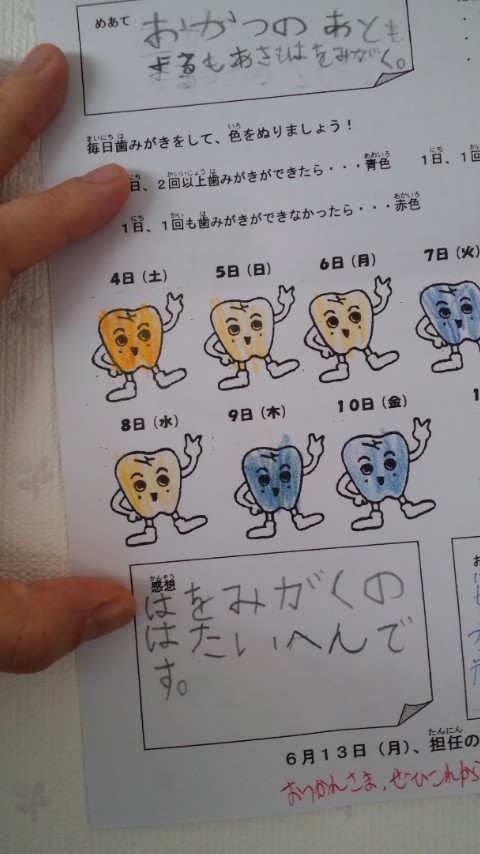 めあて
おかつのあとも
よるもあさもはをみがく。
毎日歯みがきをして、色をぬりましょう！
日、2回以上歯みがきができたら・・・青色
1日、1回
1日、1回も歯みがきができなかったら・・・赤色
4日（土）
5日（日）
6日（月）
7日（火）
8日（水）
9日（木）
10日（金）
感想
はをみがくの
はたいへんで
す。
6月13日（月）、担任の
おつかれさま。ぜひこれから